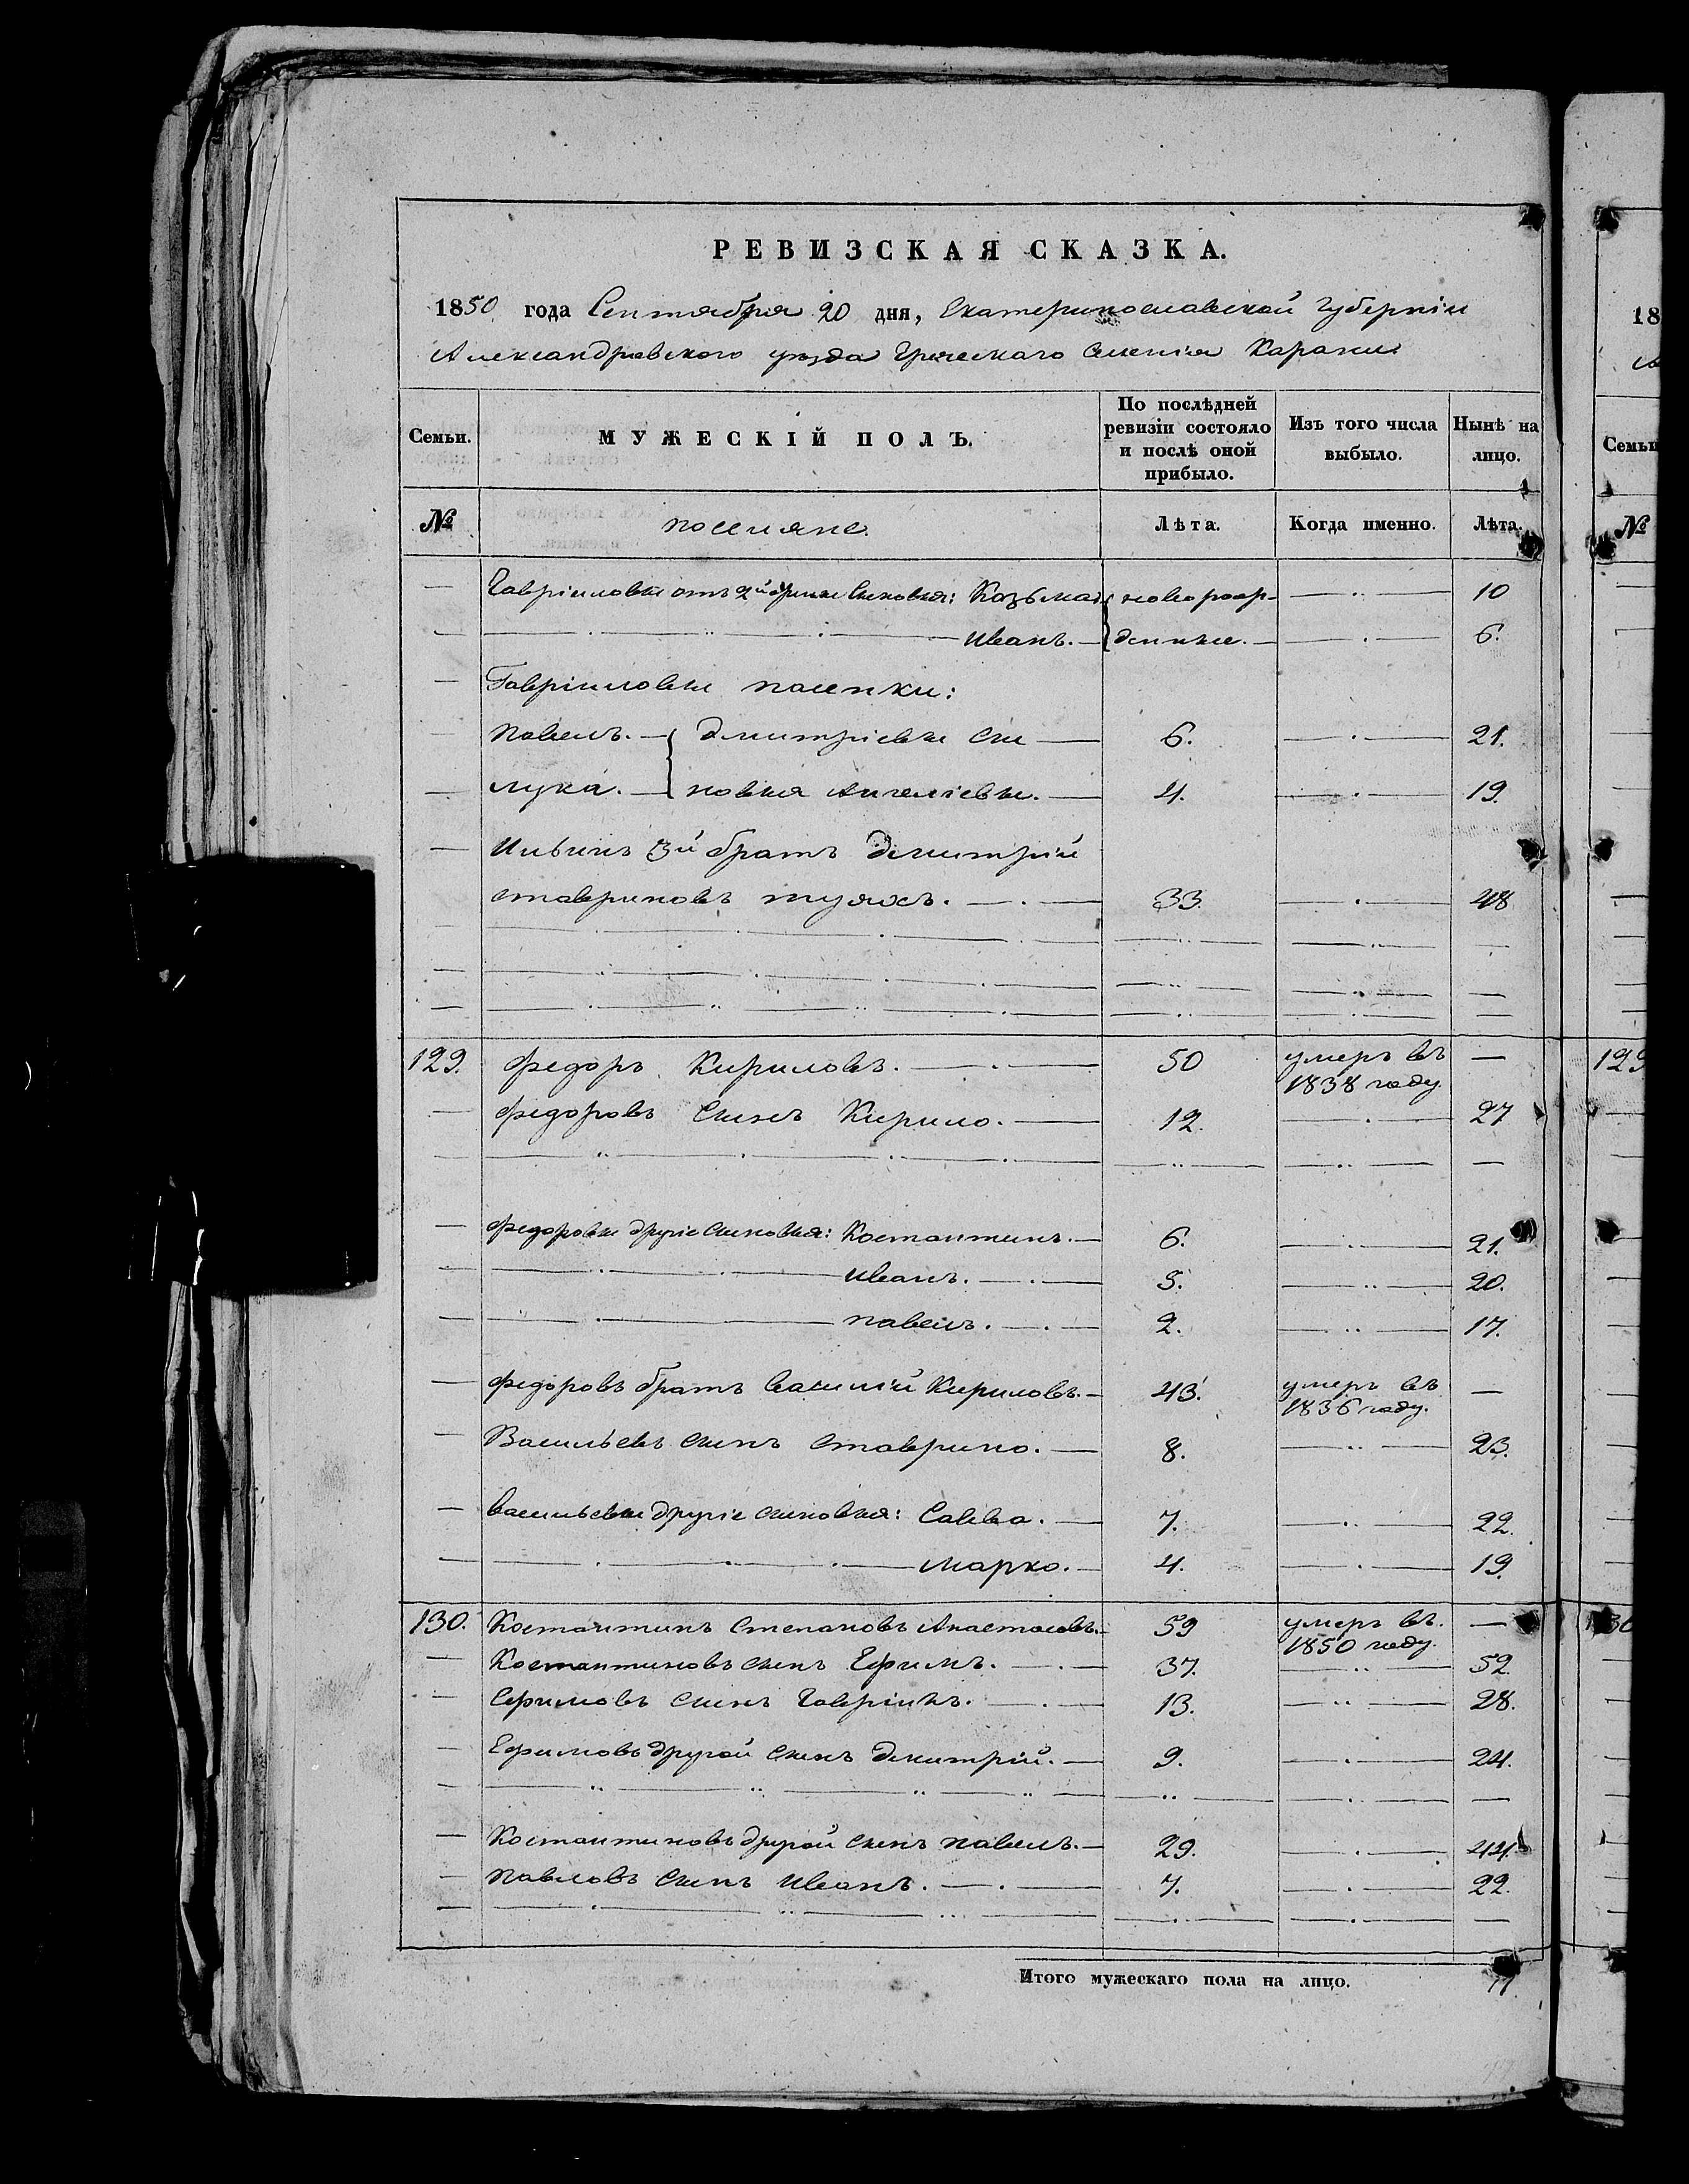 РЕВИЗСКАЯ СКАЗКА.
1850 года Сентября 20 дня, Екатеринославской Губерніи
Александровского уезда Греческаго Селенія Карани
Семьи. МУЖЕСКІЙ ПОЛЪ. По послѣдней ревизіи состояло и послѣ оной прибыло. Изъ того числа выбыло. Нынѣ на лицо.
№ поселяне. Лѣта. Когда именно. Лѣта.
Гавріиловы отъ 2й сыновья: Козьма новорож- 10
Иванъ. денные. 6.
Гавріиловы пасенки:
Павелъ. Дмитріевы сы 6. 21.
Лука. новья Ангеліевы. 4. 19.
Ильинъ 3й братъ Дмитрій
Ставриновъ 33. 48
129. Федоръ Кириловъ. 50 умеръ въ —
1838 году.
Федоровъ сынъ Кирило. 12. 27
Федоровы другіе сыновья: Костантинъ. 6. 21.
Иванъ. 5. 20.
Павелъ. 2. 17.
Федоровъ братъ Василій Кириловъ. 43. умеръ въ —
1836 году.
Васильевъ сынъ Ставрино. 8. 23.
Васильевы другіе сыновья: Савва. 7. 22.
Марко. 4. 19.
130. Костантинъ Степановъ Анастасовъ. 59 умеръ въ. —
1850 году.
Костантиновъ сынъ Ефимъ. 37. 52.
Ефимовъ сынъ Гавріилъ. 13. 28.
Ефимовъ другой сынъ Дмитрій. 9. 24.
Костантиновъ другой сынъ Павелъ. 29. 44.
Павловъ сынъ Иванъ. 7. 22.
Итого мужескаго пола на лицо.
18
Семьи
№
129